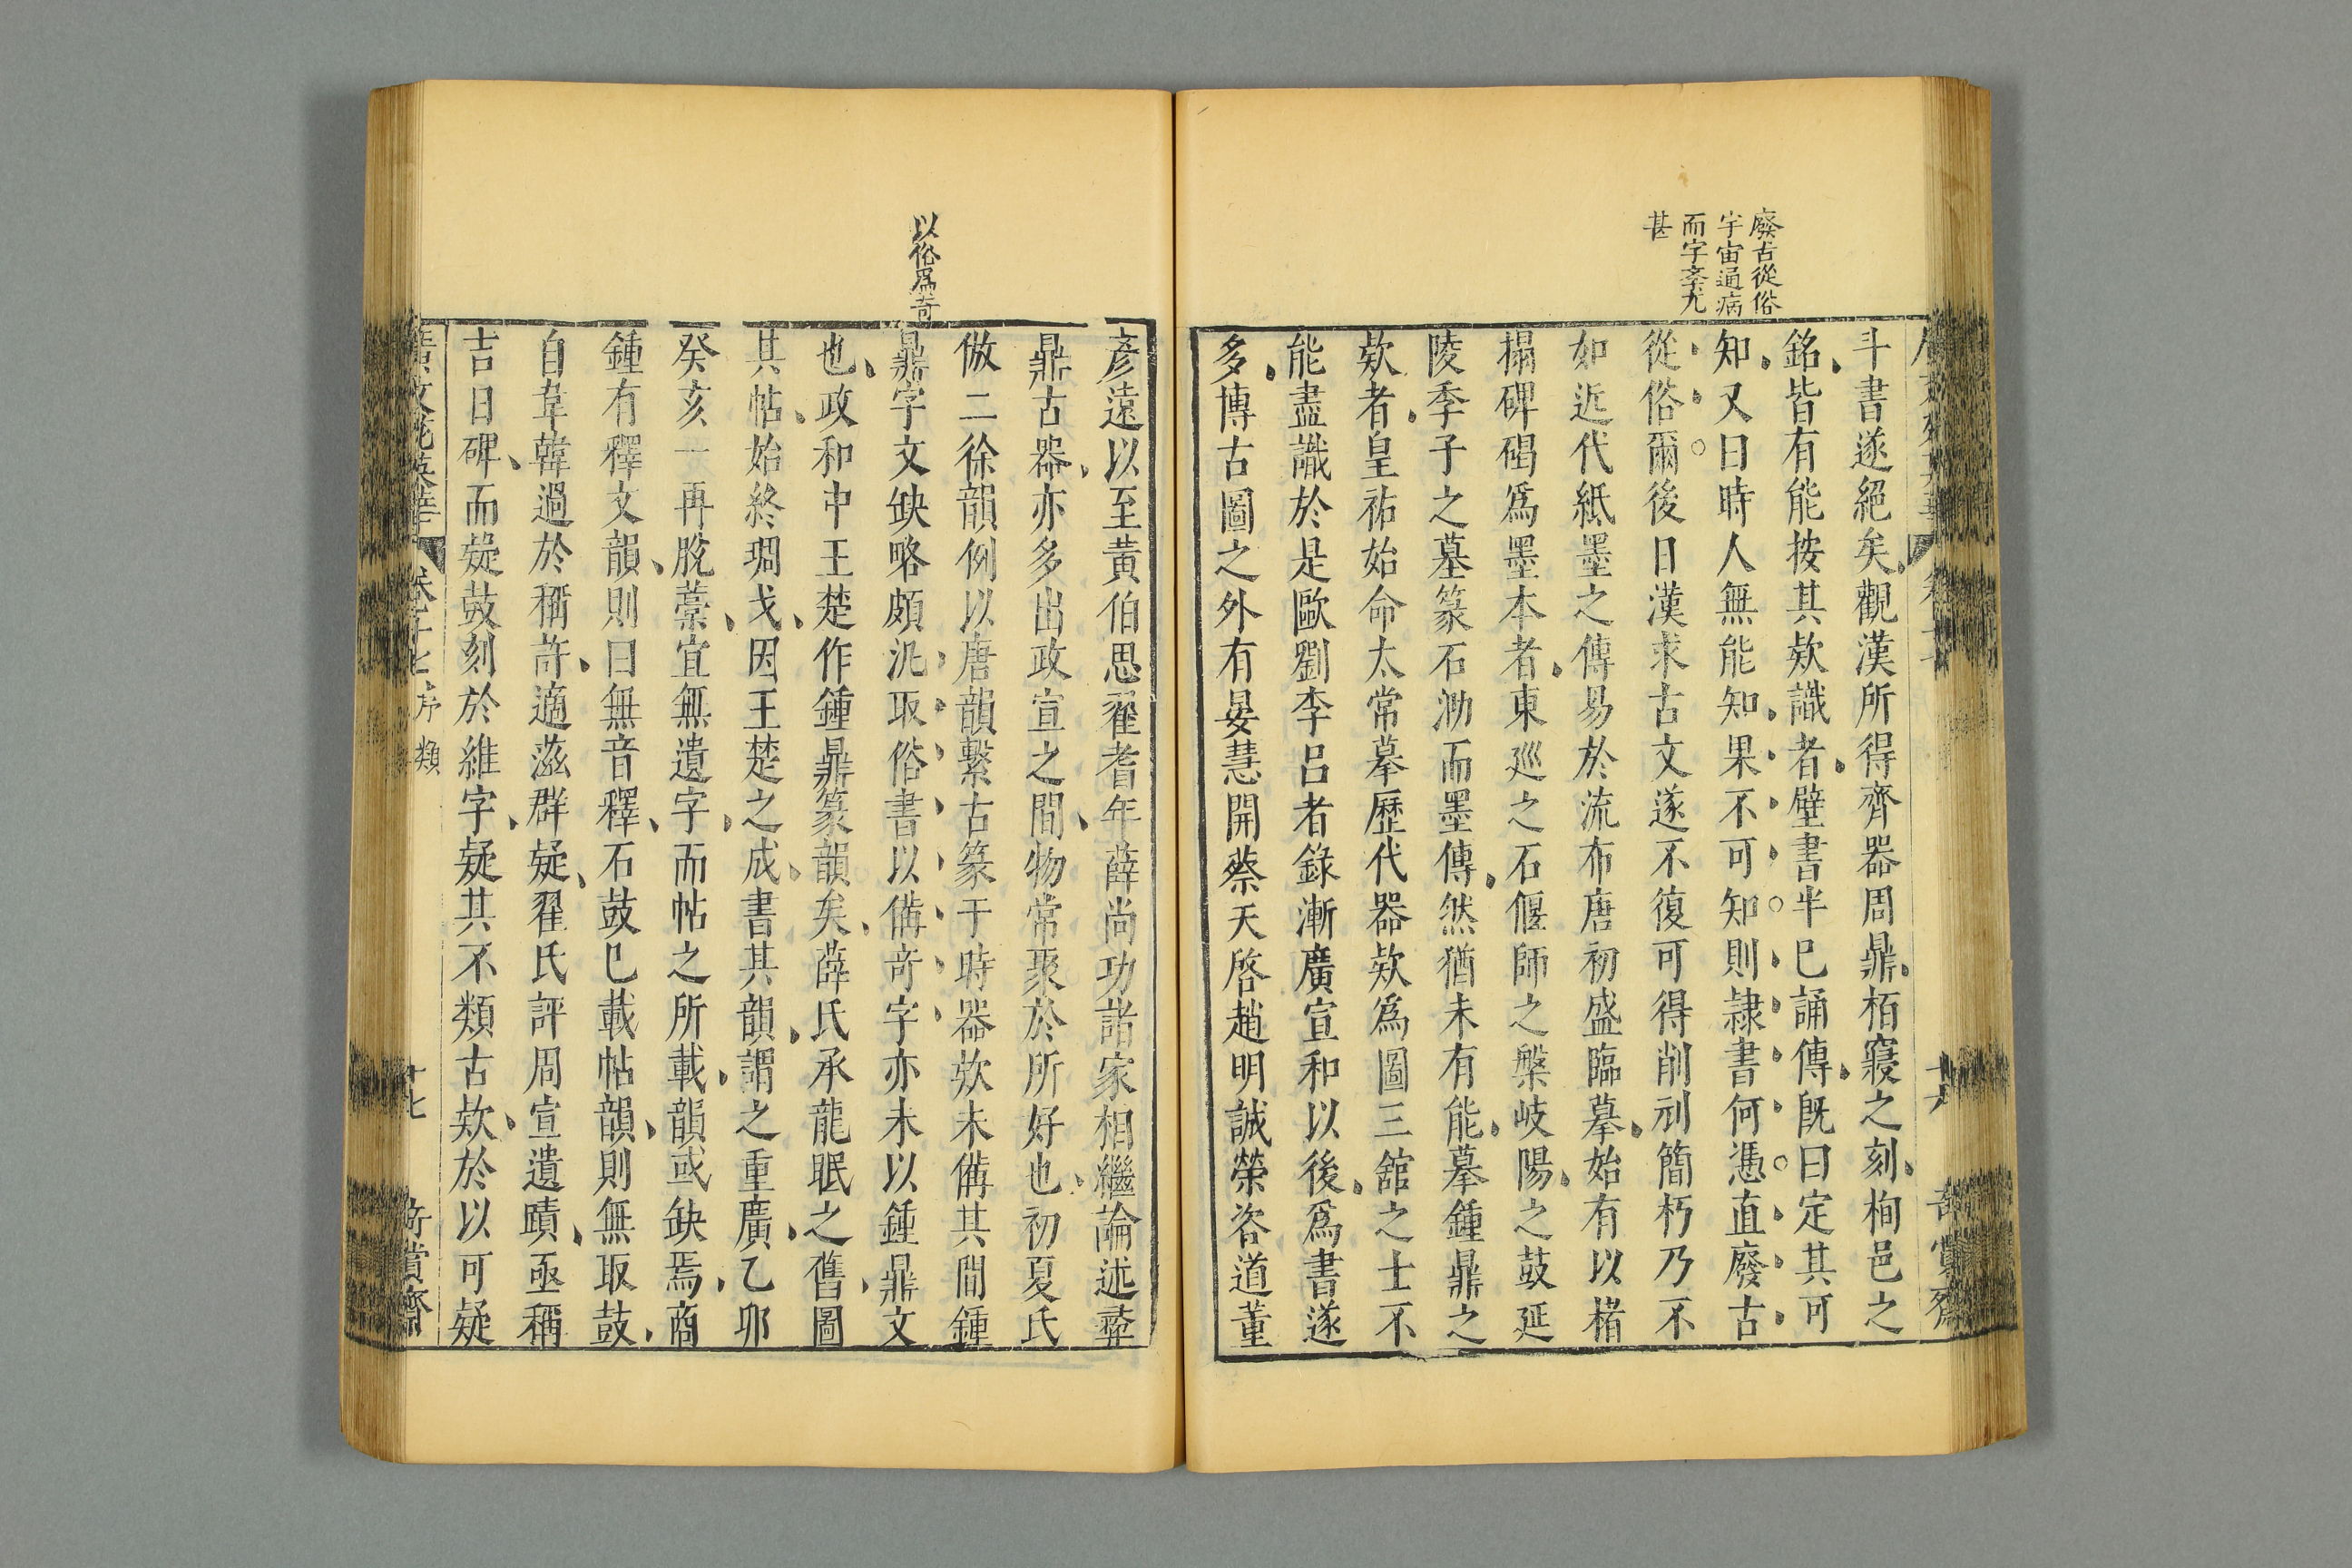 廢古從俗
宇宙通病
而字學尤
甚
斗書遂絕矣觀漢所得齊器周鼎栢寢之刻栒邑之
銘皆有能按其欵識者壁書半巳誦傳旣曰定其可
知又曰時人無能知果不可知則隷書何憑直廢古
從俗爾後日漢求古文遂不復可得削刋簡朽乃不
如近代紙墨之傳易於流布唐初盛臨摹始有以楮
搨碑碣爲墨本者東廵之石偃師之槃岐陽之鼓延
陵季子之墓篆石泐而墨傳然猶未有能摹鍾鼎之
欵者皇祐始命太常摹歷代器欵爲圖三舘之士不
能盡識於是歐劉李呂者錄漸廣宣和以後爲書遂
多博古圖之外有晏慧開蔡天啓趙明誠榮咨道董
以俗爲奇
彥遠以至黃伯思翟耆年薛尚功諸家相繼論述彝
鼎古器亦多出政宣之間物常聚於所好也初夏氏
倣二徐韻例以唐韻繫古篆于時器欵未備其間鍾
鼎字文缺略頗汎取俗書以備奇字亦未以鍾鼎文
也政和中王楚作鍾鼎篆韻矣薛氏承龍眠之舊圖
其帖始終琱戈因王楚之成書其韻謂之重廣乙夘
癸亥一再脫藁宜無遺字而帖之所載韻或缺焉商
鍾有釋文韻則曰無音釋石鼓巳載帖韻則無取鼓
自韋韓過於稱許適滋群疑翟氏評周宣遺蹟亟稱
吉日碑而疑鼓刻於維字疑其不類古欵於以可疑
廣文苑英華
卷十七
序類
十七
奇賞齋